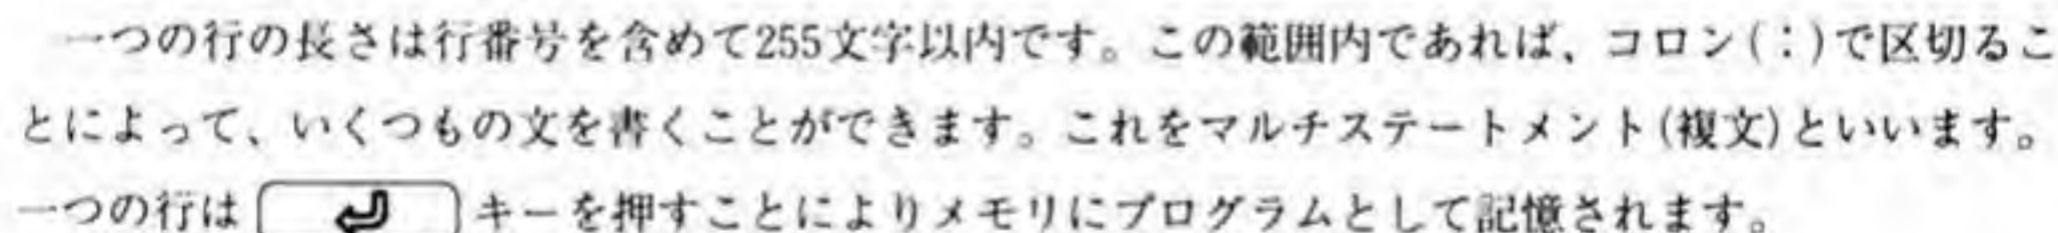 一つの行の長さは行番号を含めて255文字以内です。この範囲内であれば、コロン(:)で区切るこ
とによって、いくつもの文を書くことができます。これをマルチステートメント(複文)といいます。
一つの行は ↵ キーを押すことによりメモリにプログラムとして記憶されます。